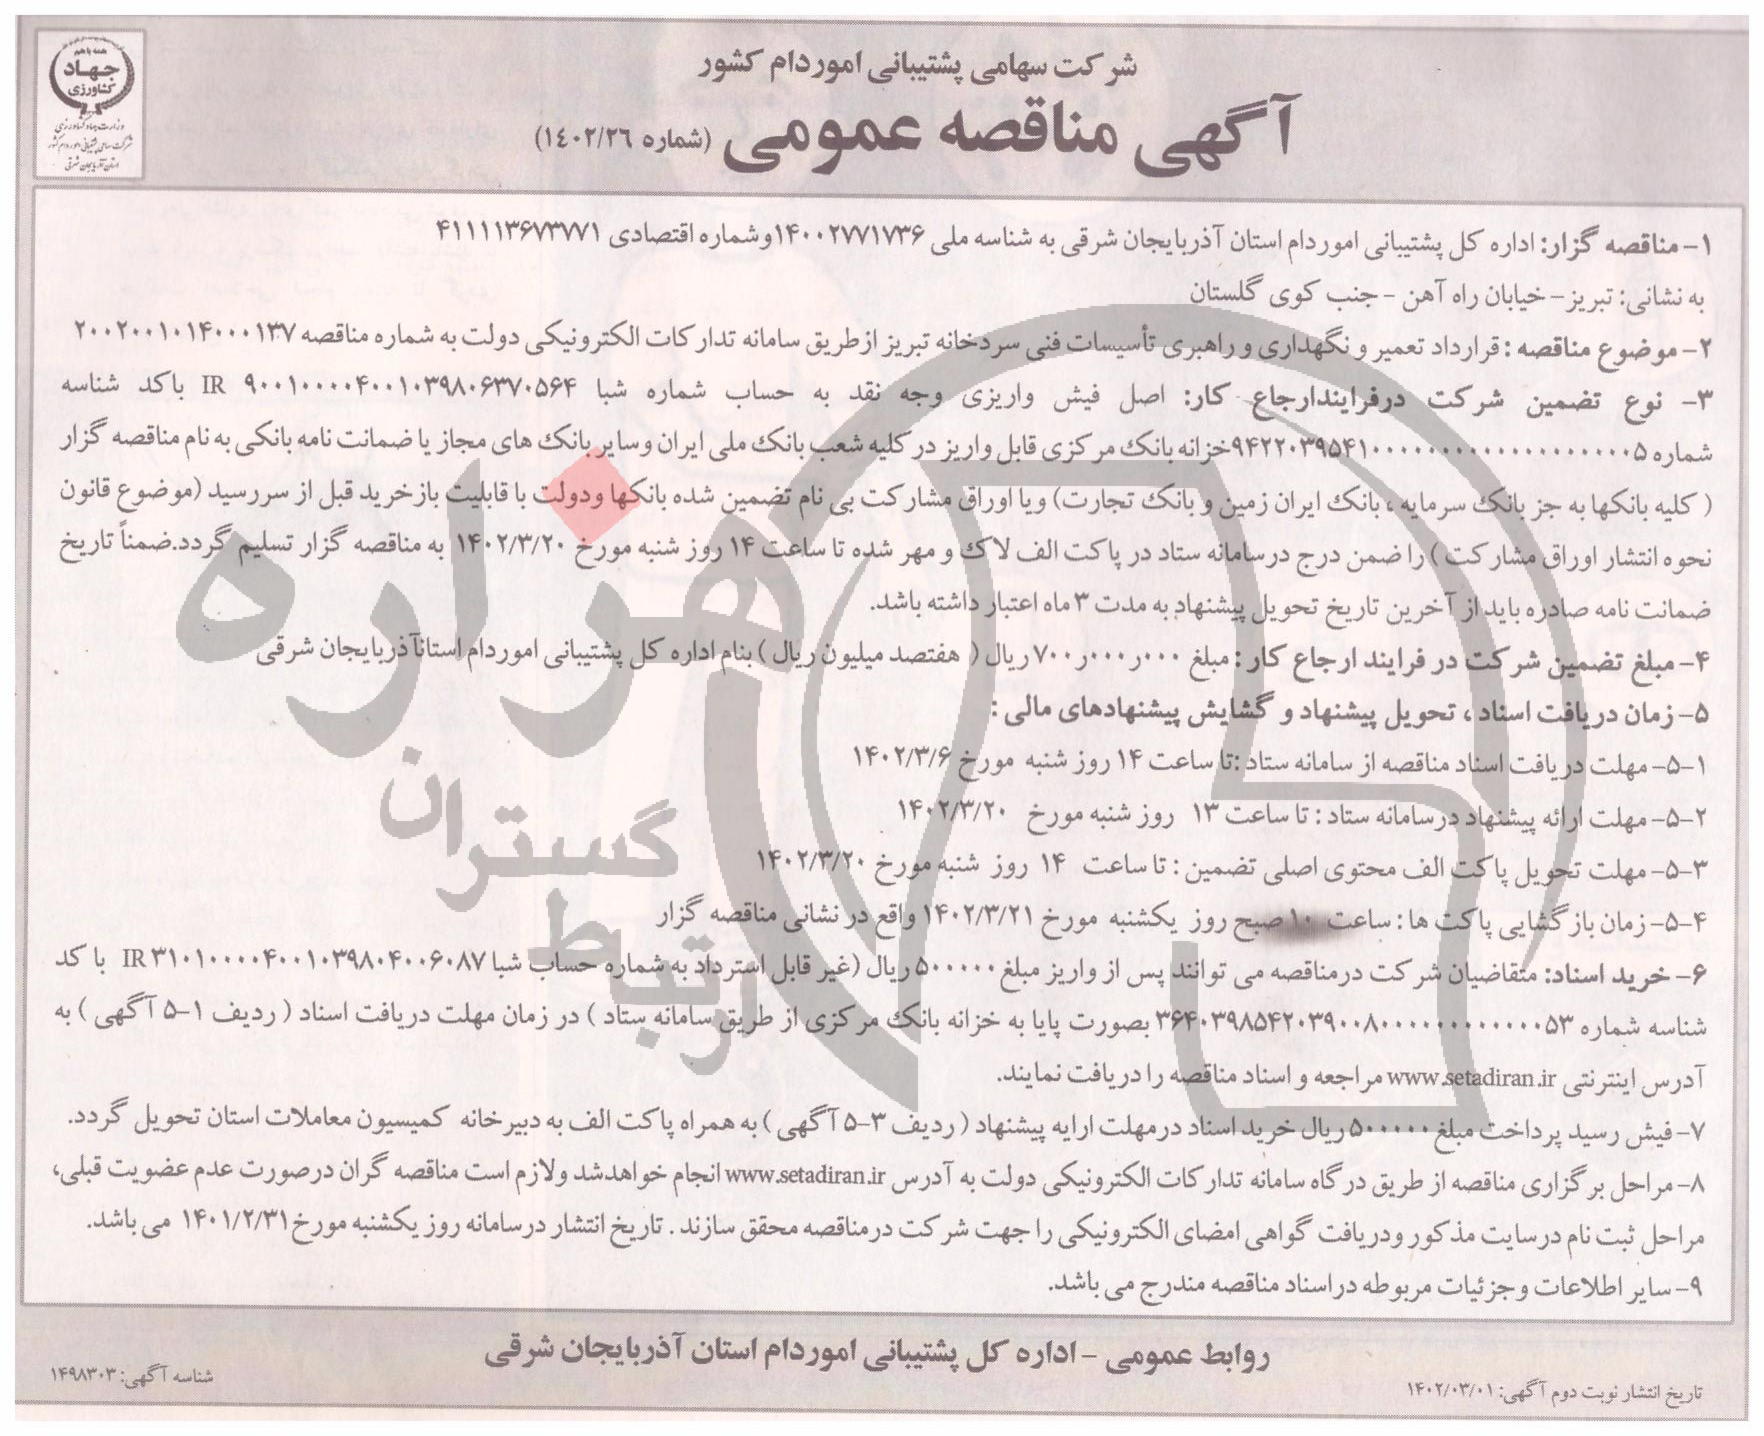 همه با هم
جهاد
کشاورزی
وزارت جهاد کشاورزی
شرکت سهامی پشتیبانی امور دام کشور
استان آذربایجان شرقی
شرکت سهامی پشتیبانی اموردام کشور
آگهی مناقصه عمومی (شماره ۱۴۰۲/۲۶)
۱- مناقصه گزار: اداره کل پشتیبانی اموردام استان آذربایجان شرقی به شناسه ملی ۱۴۰۰۲۷۷۱۷۳۶وشماره اقتصادی ۴۱۱۱۱۳۶۷۳۷۷۱
به نشانی: تبریز- خیابان راه آهن - جنب کوی گلستان
۲- موضوع مناقصه : قرارداد تعمیر و نگهداری و راهبری تأسیسات فنی سردخانه تبریز ازطریق سامانه تدارکات الکترونیکی دولت به شماره مناقصه ۲۰۰۲۰۰۱۰۱۴۰۰۰۱۳۷
۳- نوع تضمین شرکت درفرایندارجاع کار: اصل فیش واریزی وجه نقد به حساب شماره شبا IR ۹۰۰۱۰۰۰۰۴۰۰۱۰۳۹۸۰۶۳۷۰۵۶۴ باکد شناسه
شماره خزانه بانک مرکزی قابل واریز در کلیه شعب بانک ملی ایران وسایر بانک های مجاز یا ضمانت نامه بانکی به نام مناقصه گزار
( کلیه بانکها به جز بانک سرمایه ، بانک ایران زمین و بانک تجارت) ویا اوراق مشارکت بی نام تضمین شده بانکها ودولت با قابلیت بازخرید قبل از سررسید (موضوع قانون
نحوه انتشار اوراق مشارکت ) را ضمن درج درسامانه ستاد در پاکت الف لاک و مهر شده تا ساعت ۱۴ روز شنبه مورخ ۱۴۰۲/۳/۲۰ به مناقصه گزار تسلیم گردد.ضمناً تاریخ
ضمانت نامه صادره باید از آخرین تاریخ تحویل پیشنهاد به مدت ۳ ماه اعتبار داشته باشد.
۴- مبلغ تضمین شرکت در فرایند ارجاع کار: مبلغ ۷۰۰ر۰۰۰ر۰۰۰ ریال ( هفتصد میلیون ریال ) بنام اداره کل پشتیبانی اموردام استانآذربایجان شرقی
۵- زمان دریافت اسناد ، تحویل پیشنهاد و گشایش پیشنهادهای مالی :
۵-۱- مهلت دریافت اسناد مناقصه از سامانه ستاد :تا ساعت ۱۴ روز شنبه مورخ ۱۴۰۲/۳/۶
۵-۲- مهلت ارائه پیشنهاد درسامانه ستاد : تا ساعت ۱۳ روز شنبه مورخ ۱۴۰۲/۳/۲۰
۵-۳- مهلت تحویل پاکت الف محتوی اصلی تضمین : تا ساعت ۱۴ روز شنبه مورخ ۱۴۰۲/۳/۲۰
۵-۴- زمان بازگشایی پاکت ها : ساعت ۱۰ صبح روز یکشنبه مورخ ۱۴۰۲/۳/۲۱ واقع در نشانی مناقصه گزار
۶- خرید اسناد: متقاضیان شرکت درمناقصه می توانند پس از واریز مبلغ ۵۰۰۰۰۰ ریال (غیر قابل استرداد به شماره حساب شبا IR ۳۱۰۱۰۰۰۰۴۰۰۱۰۳۹۸۰۴۰۰۶۰۸۷ با کد
شناسه شماره بصورت پایا به خزانه بانک مرکزی از طریق سامانه ستاد ) در زمان مهلت دریافت اسناد ( ردیف ۱-۵ آگهی ) به
آدرس اینترنتی www.setadiran.ir مراجعه و اسناد مناقصه را دریافت نمایند.
۷- فیش رسید پرداخت مبلغ ۵۰۰۰۰۰ ریال خرید اسناد درمهلت ارایه پیشنهاد ( ردیف ۳-۵ آگهی ) به همراه پاکت الف به دبیرخانه کمیسیون معاملات استان تحویل گردد.
۸- مراحل برگزاری مناقصه از طریق درگاه سامانه تدارکات الکترونیکی دولت به آدرس www.setadiran.ir انجام خواهدشد ولازم است مناقصه گران درصورت عدم عضویت قبلی،
مراحل ثبت نام درسایت مذکور ودریافت گواهی امضای الکترونیکی را جهت شرکت درمناقصه محقق سازند . تاریخ انتشار درسامانه روز یکشنبه مورخ ۱۴۰۱/۲/۳۱ می باشد.
۹- سایر اطلاعات و جزئیات مربوطه دراسناد مناقصه مندرج می باشد.
روابط عمومی - اداره کل پشتیبانی اموردام استان آذربایجان شرقی
تاریخ انتشار نوبت دوم آگهی: ۱۴۰۲/۰۳/۰۱
شناسه آگهی: ۱۴۹۸۳۰۳
هزاره
گستران
رتبط